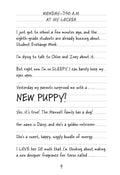 MONDAY—7:40 A.M.
AT MY LOCKER
I just got to school a few minutes ago, and the
eighth-grade students are already buzzing about
Student Exchange Week.
I'm dying to talk to Chloe and Zoey about it.
But right now I'm so SLEEPY I can barely keep my
eyes open.
Yesterday my parents surprised me with a . . .
NEW PUPPY?
Yes, it's true! The Maxwell family has a dog!
Her name is Daisy, and she's a golden retriever.
She's a sweet, happy, wiggly bundle of energy.
I LOVE her SO much that I'm thinking about making
a new designer fragrance for teens called . . .